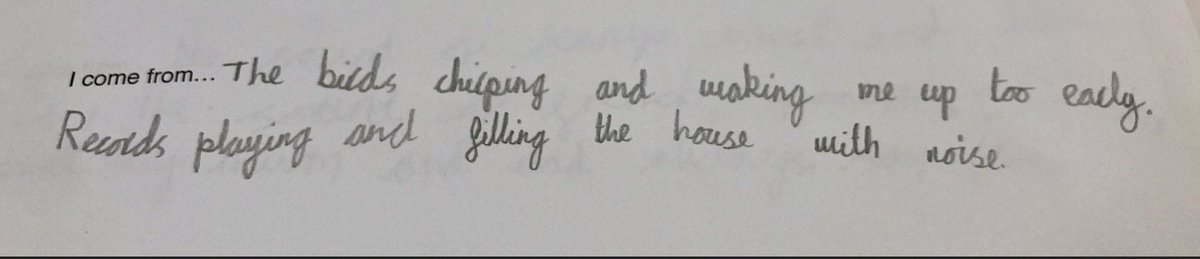 I come from... The birds chirping and waking me up too early.
Records playing and filling the house with noise.